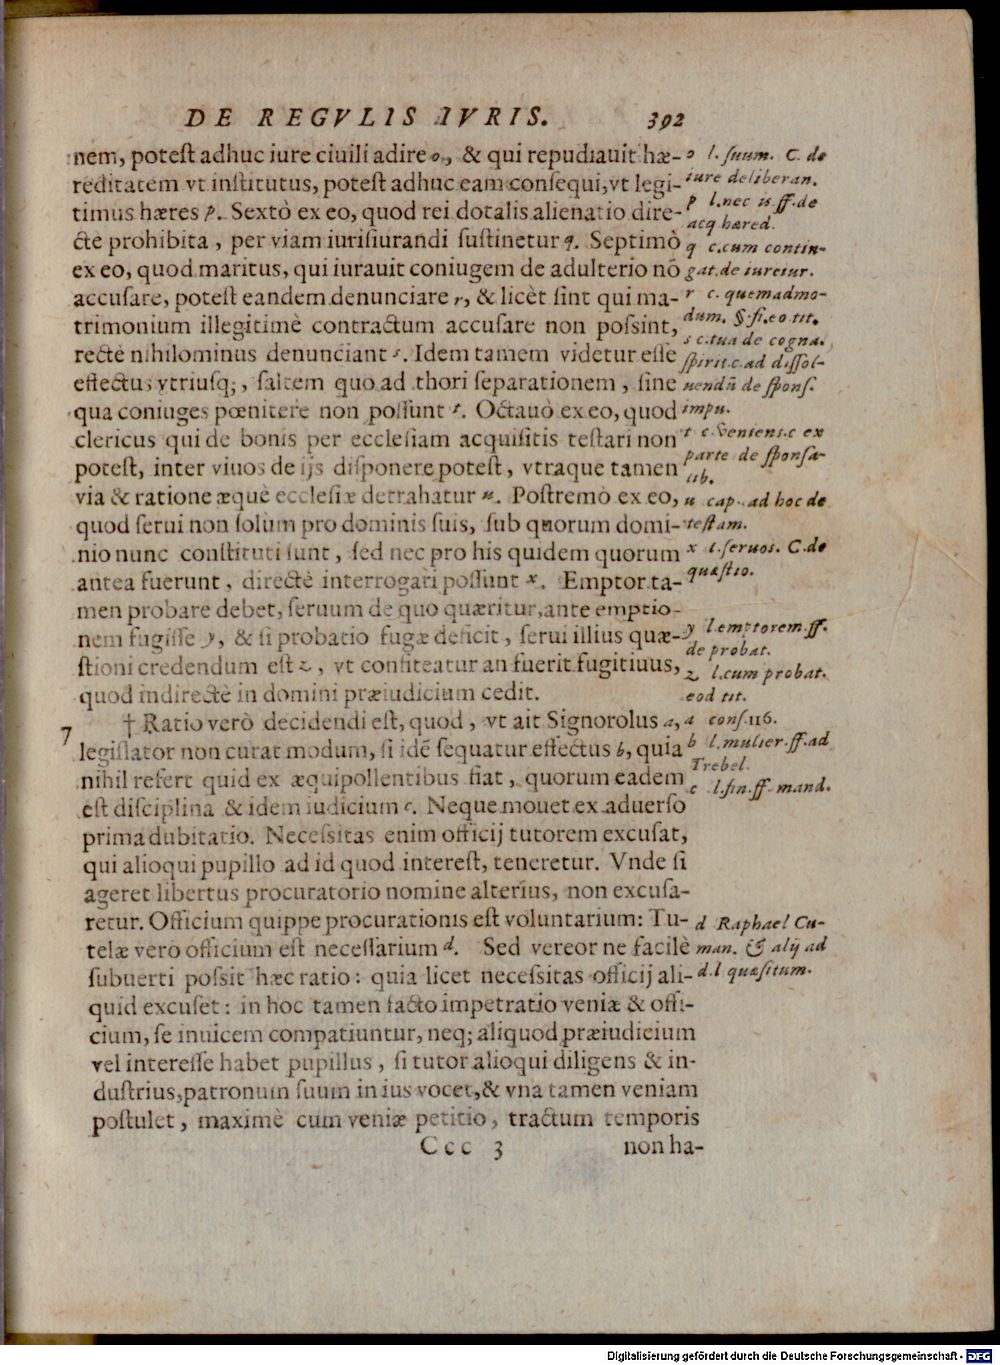 DE REGVLIS IVRIS. 392
nem, potest adhuc iure ciuili adire o, & qui repudiauit hæ-
reditatem vt institutus, potest adhuc eam consequi, vt legi-
timus hæres p. Sextò ex eo, quod rei dotalis alienatio dire-
ctè prohibita, per viam iurisiurandi sustinetur q. Septimò
ex eo, quod maritus, qui iurauit coniugem de adulterio nō
accusare, potest eandem denunciare r, & licèt sint qui ma-
trimonium illegitimè contractum accusare non possint,
rectè nihilominus denunciant s. Idem tamem videtur esse
effectus vtriusq;, saltem quo ad thori separationem, sine
qua coniuges pœnitere non possunt t. Octauò ex eo, quod
clericus qui de bonis per ecclesiam acquisitis testari non
potest, inter viuos de ijs disponere potest, vtraque tamen
via & ratione æquè ecclesiæ detrahatur u. Postremò ex eo,
quod serui non solùm pro dominis suis, sub quorum domi-
nio nunc constituti sunt, sed nec pro his quidem quorum
antea fuerunt, directè interrogari possunt x. Emptor ta-
men probare debet, seruum de quo quæritur, ante emptio-
nem fugisse y, & si probatio fugæ deficit, serui illius quæ-
stioni credendum est z, vt confiteatur an fuerit fugitiuus,
quod indirectè in domini præiudicium cedit.
7 † Ratio verò decidendi est, quod, vt ait Signorolus a,
legislator non curat modum, si idē sequatur effectus b, quia
nihil refert quid ex æquipollentibus fiat, quorum eadem
est disciplina & idem iudicium c. Neque mouet ex aduerso
prima dubitatio. Necessitas enim officij tutorem excusat,
qui alioqui pupillo ad id quod interest, teneretur. Vnde si
ageret libertus procuratorio nomine alterius, non excusa-
retur. Officium quippe procurationis est voluntarium: Tu-
telæ vero officium est necessarium d. Sed vereor ne facilè
subuerti possit hæc ratio: quia licet necessitas officij ali-
quid excuset: in hoc tamen facto impetratio veniæ & offi-
cium, se inuicem compatiuntur, neq; aliquod præiudicium
vel interesse habet pupillus, si tutor alioqui diligens & in-
dustrius, patronum suum in ius vocet, & vna tamen veniam
postulet, maximè cum veniæ petitio, tractum temporis
Ccc 3 non ha-
o l. suum. C. de
iure deliberan.
p l. nec is. ff. de
acq hæred.
q c. cum contin-
gat. de iureiur.
r c. quemadmo-
dum. §. fi. eo tit.
s c. tua de cogna.
spirit. c. ad dissol-
uendū de spons.
impu.
t c. Veniens. c ex
parte de sponsa-
lib.
u cap. ad hoc de
testam.
x l. seruos. C. de
quæstio.
y l. emptorem. ff.
de probat.
z l. cum probat.
eod tit.
a cons. 116.
b l. mulier. ff. ad
Trebel.
c l. fin. ff. mand.
d Raphael Cu-
man. & alij ad
d. l quæsitum.
Digitalisierung gefördert durch die Deutsche Forschungsgemeinschaft - DFG